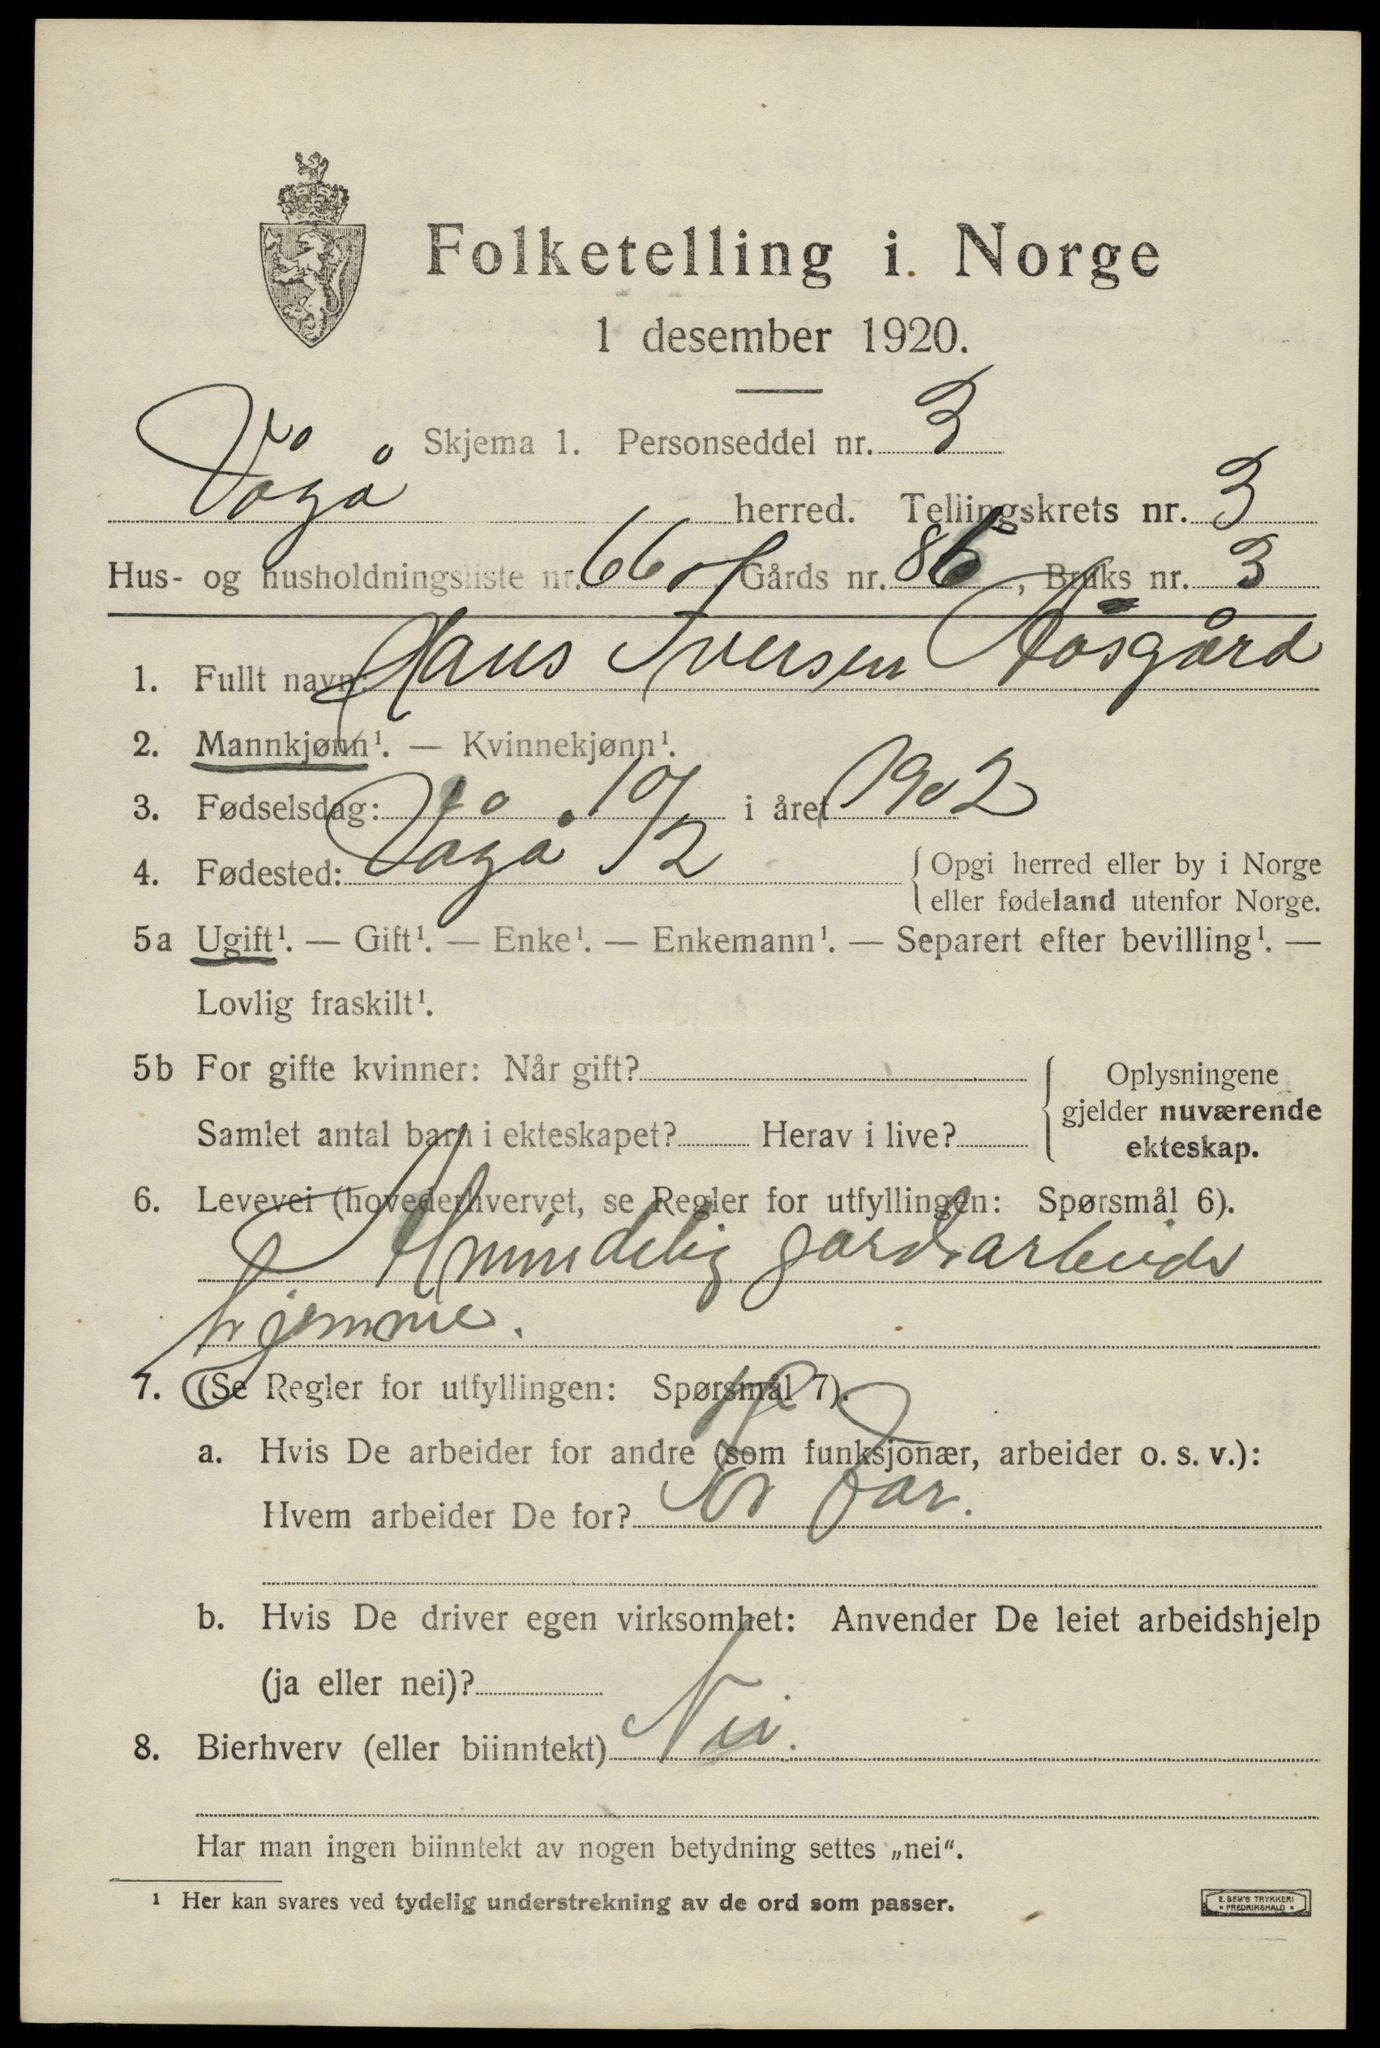 Folketelling i Norge
1 desember 1920.
Skjema 1. Personseddel nr. 3
Vågå herred. Tellingskrets nr. 3
Hus- og husholdningsliste nr. 66 Gårds nr. 86, Bruks nr. 3
1. Fullt navn: Hans Iversen Åsgård
2. Mannkjønn¹. — Kvinnekjønn¹.
3. Fødselsdag: 10/2 i året 1902
4. Fødested: Vågå { Opgi herred eller by i Norge
eller fødeland utenfor Norge.
5a Ugift¹. — Gift¹. — Enke¹. — Enkemann¹. — Separert efter bevilling¹. —
Lovlig fraskilt¹.
5b For gifte kvinner: Når gift? { Oplysningene
gjelder nuværende
Samlet antal barn i ekteskapet? Herav i live?
ekteskap.
6. Levevei (hovederhvervet, se Regler for utfyllingen: Spørsmål 6).
Almindelig gardsarbeide
hjemme.
7. (Se Regler for utfyllingen: Spørsmål 7).
a. Hvis De arbeider for andre (som funksjonær, arbeider o. s. v.):
Hvem arbeider De for? for Far.
b. Hvis De driver egen virksomhet: Anvender De leiet arbeidshjelp
(ja eller nei)?
8. Bierhverv (eller biinntekt) Nei.
Har man ingen biinntekt av nogen betydning settes „nei“.
¹ Her kan svares ved tydelig understrekning av de ord som passer.
E. SEM'S TRYKKERI
• FREDRIKSHALD •